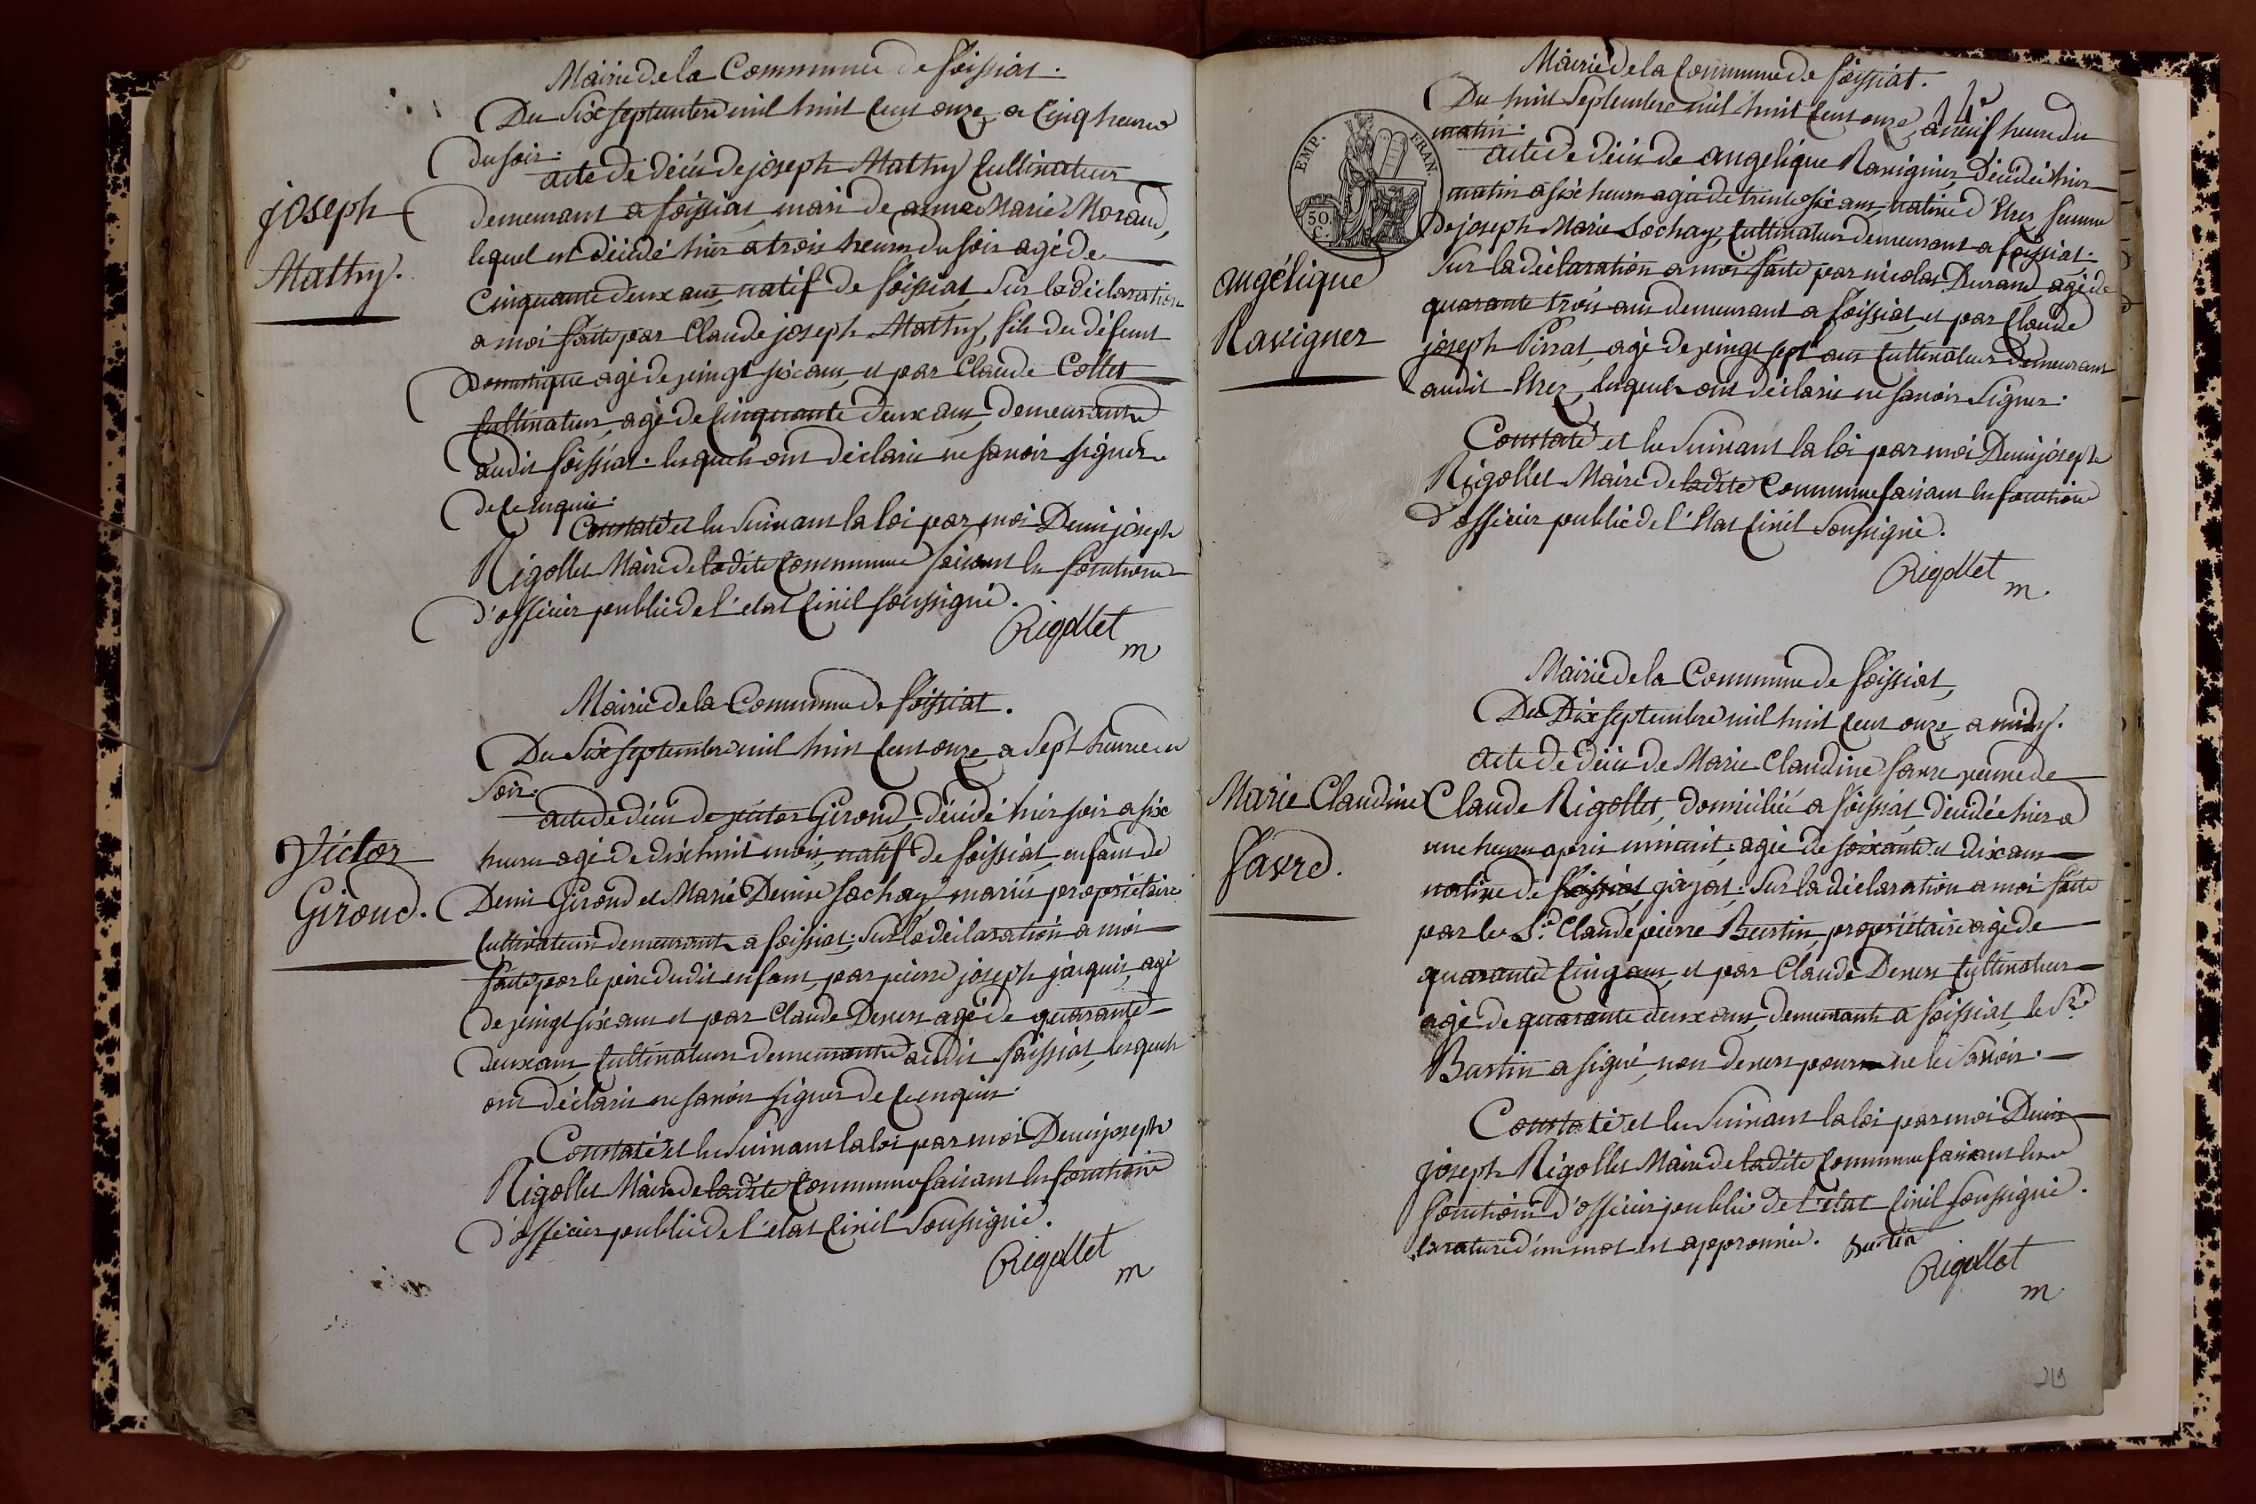 Mairie de la Commune de foissiat.
Du Six septembre mil huit Cent onze, a Cinq heures
du soir.
acte de décès de joseph Mathy Cultivateur
joseph
Mathy.
demeurant a foissiat, mari de anne Marie Morand,
lequel est décédé hier a trois heures du soir agé de
Cinquante deux ans, natif de foissiat, Sur la déclaration
a moi faite par Claude joseph Mathy, fils du défunt
domestique agé de vingt six ans, et par Claude Collet
Cultivateur, agé de Cinquante deux ans, demeurants
audit foissiat. lesquels ont déclaré ne savoir signer
de ce enquis.
Constaté et lu Suivant la loi par moi Denis joseph
Rigollet Maire de ladite Commune faisant les fonctions
d'officier public de l'etat Civil soussigné.
Rigollet
m
Mairie de la Commune de foissiat.
Du Six septembre mil huit Cent onze, a Sept heures du
soir.
acte de décès de victor Giroud, décédé hier soir a six
Victor
Giroud.
heures agé de dix huit mois, natif de foissiat, enfant de
Denis Giroud et Marie Denise Sochay, mariés propriétaire
Cultivateurs demeurants a foissiat; Sur la déclaration a moi
faite par le père dudit enfant, par pierre joseph jacquis, agé
de vingt six ans et par Claude Deners agé de quarante
deux ans, Cultivateurs demeurants audit foissiat, lesquels
ont déclaré ne savoir signer de ce enquis.
Constaté et lu Suivant la loi par moi Denis joseph
Rigollet Maire de ladite Commune faisant les fonctions
d'officier public de l'etat Civil Soussigné.
Rigollet
m
EMP. FRAN.
50
C.
Mairie de la Commune de foissiat.
Du huit Septembre mil huit Cent onze, a neuf heures du
matin.
acte de décès de angelique Ravignier, décédée hier
matin a six heures agée de trente six ans, native d'Etrez, femme
de joseph Marie Sochay, Cultivateur demeurant a foissiat.
angélique
Ravigner
Sur la déclaration a moi faite par nicolas Durand, agé de
quarante trois ans demeurant a foissiat, et par Claude
joseph Pirrat, agé de vingt sept ans Cultivateurs demeurant
audit Etrez, lesquels ont déclaré ne savoir Signer.
Constaté et lu Suivant la loi par moi Denis joseph
Rigollet Maire de ladite Commune faisant les fonctions
d'officier public de l'Etat Civil Soussigné.
Rigollet
m.
Mairie de la Commune de foissiat,
Du Dix septembre mil huit Cent onze, a midy.
acte de décès de Marie Claudine favre veuve de
Marie Claudine
favre.
Claude Rigollet, domiciliée a foissiat, décédée hier a
une heure après minuit, agée de soixante et dix ans
native de foissiat jayat. Sur la déclaration a moi faite
par le Sr. Claude pierre Burtin, propriétaire agé de
quarante Cinq ans, et par Claude Deners Cultivateur
agé de quarante deux ans, demeurants a foissiat, le Sr.
Burtin a signé, non deners pour ne le Savoir.
Constaté et lu Suivant la loi par moi Denis
joseph Rigollet Maire de ladite Commune faisant les
fonctions d'officier public de l'état Civil soussigné.
la rature d'un mot est approuvée. Burtin
Rigollet
m
219